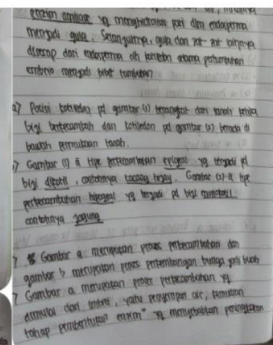 enzim amilase yg menghidrolisis pati dlm endosperma
menjadi gula. Selanjutnya, gula dan zat-zat lainnya
diserap dari endosperma oleh kotiledon selama pertumbuhan
embrio menjadi bibit tumbuhan
a) Posisi kotiledon pd gambar (1) terangkat dari tanah ketika
biji berkecambah dan kotiledon pd gambar (2) berada di
bawah permukaan tanah.
) Gambar (1) = tipe perkecambahan epigeal yg terjadi pd
biji dikotil, contohnya kacang hijau. Gambar (2) = tipe
perkecambahan hipogeal yg terjadi pd biji monokotil
contohnya jagung
Gambar a merupakan proses perkecambahan dan
gambar b merupakan proses perkembangan bunga jadi buah
Gambar a merupakan proses perkecambahan yg
dimulai dari imbibisi, yaitu penyerapan air, kemudian
tahap pembentukan enzim yg menyebabkan peningkatan